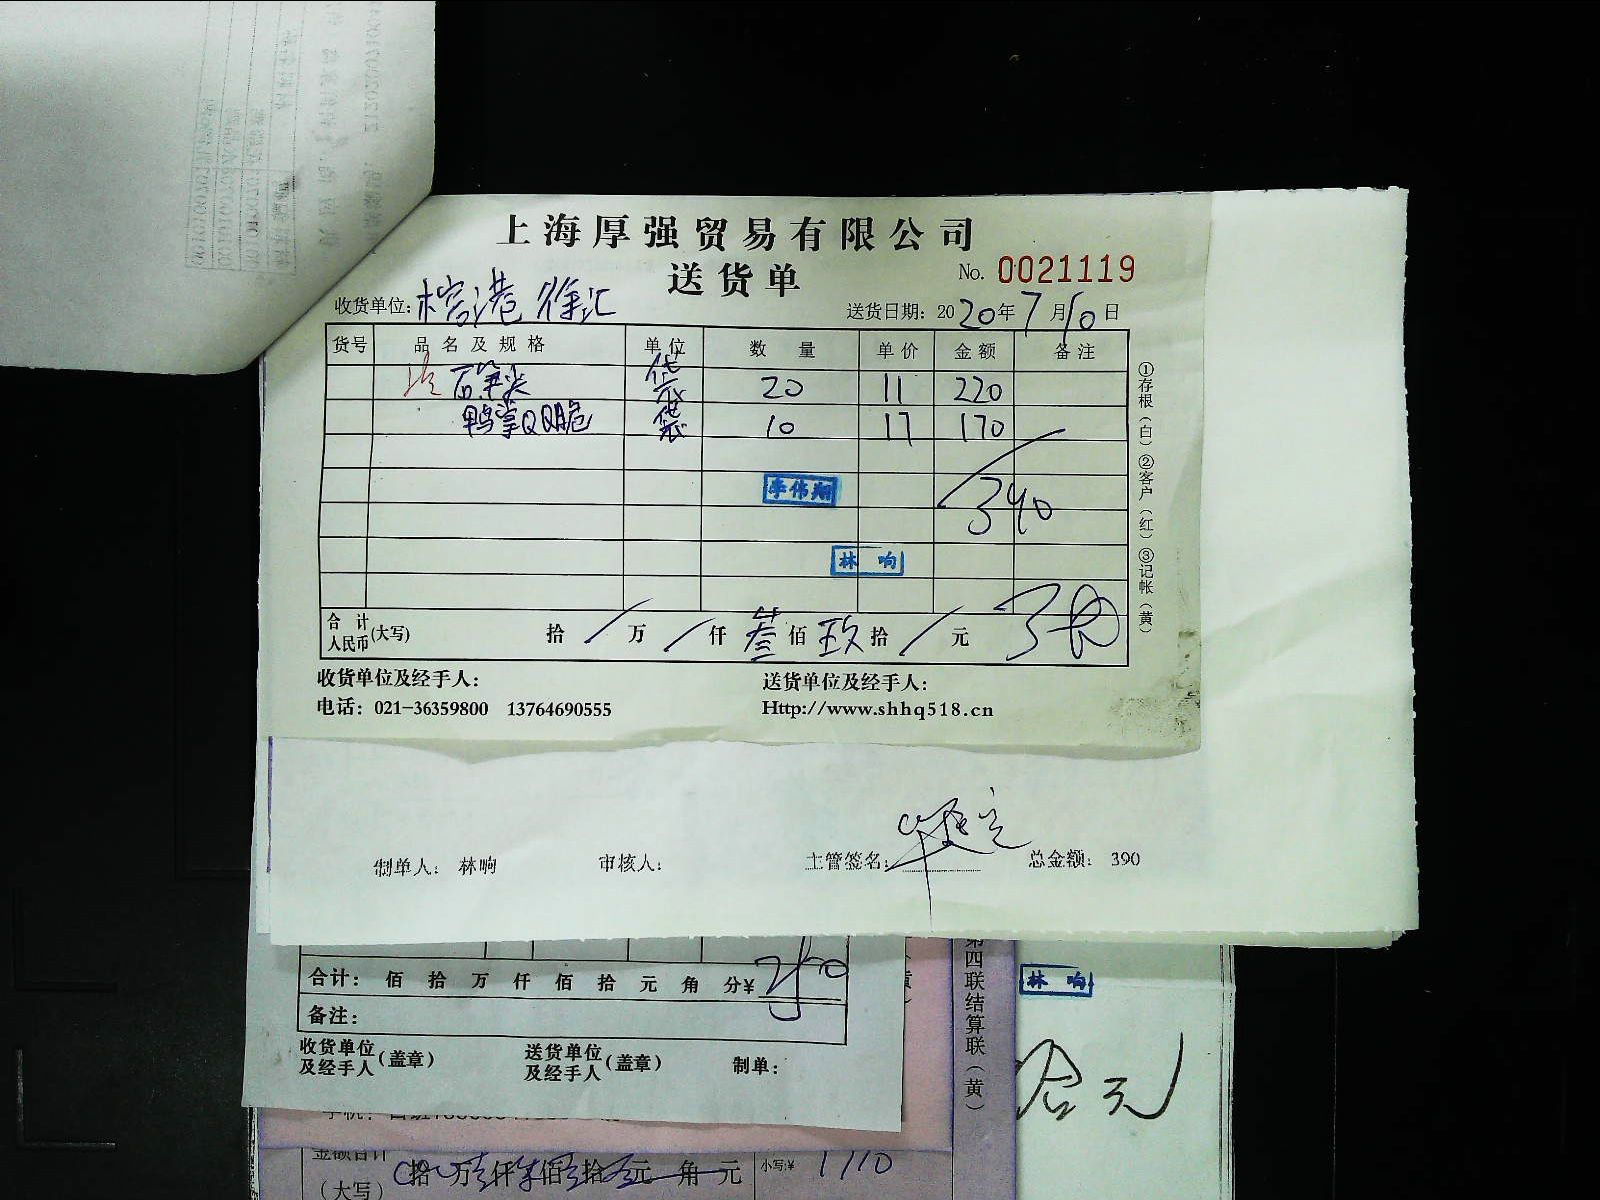 上海厚强贸易有限公司
送货单 No. 0021119
收货单位: 榕港 徐汇 送货日期: 2020年7月10日
货号 品名及规格 单位 数量 单价 金额 备注
笋尖 袋 20 11 220
鸭掌QQ脆 袋 10 17 170
李伟翔
390
林响
合计人民币(大写) 拾/万/仟叁佰玖拾/元 390
收货单位及经手人: 送货单位及经手人:
电话: 021-36359800 13764690555 Http://www.shhq518.cn
①存根(白)②客户(红)③记帐(黄)
制单人: 林响 审核人: 主管签名: 总金额: 390
合计: 佰 拾 万 仟 佰 拾 元 角 分¥
备注:
收货单位及经手人(盖章) 送货单位及经手人(盖章) 制单:
第四联结算联(黄)
林响
元
金额合计(大写) 拾 万 仟 佰 拾 元 角 元 小写:¥ 1110